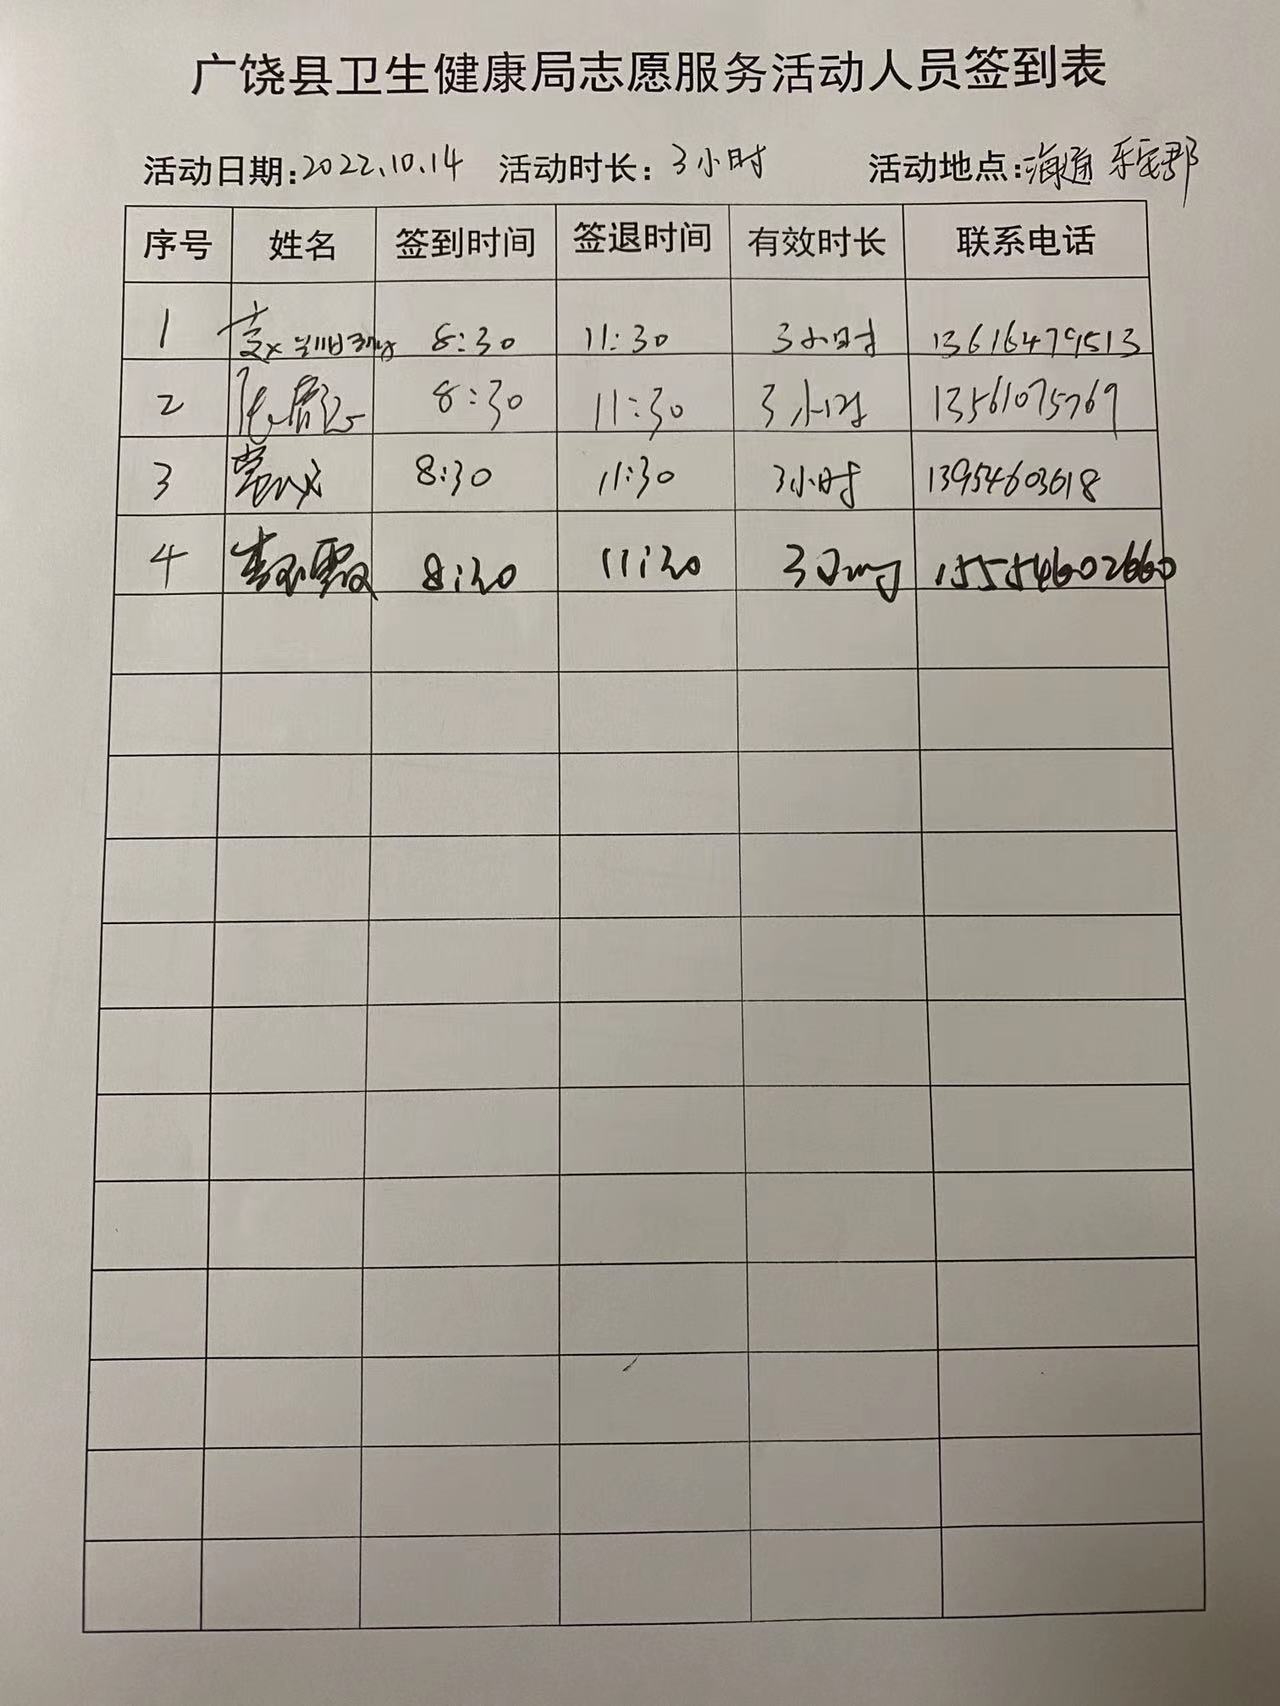 广饶县卫生健康局志愿服务活动人员签到表
活动日期:2022.10.14 活动时长:3小时 活动地点:海通
序号 姓名 签到时间 签退时间 有效时长 联系电话
1 8:30 11:30 3小时 13616479513
2 8:30 11:30 3小时 13561075769
3 8:30 11:30 3小时 13954603618
4 8:30 11:30 3小时 15554602660